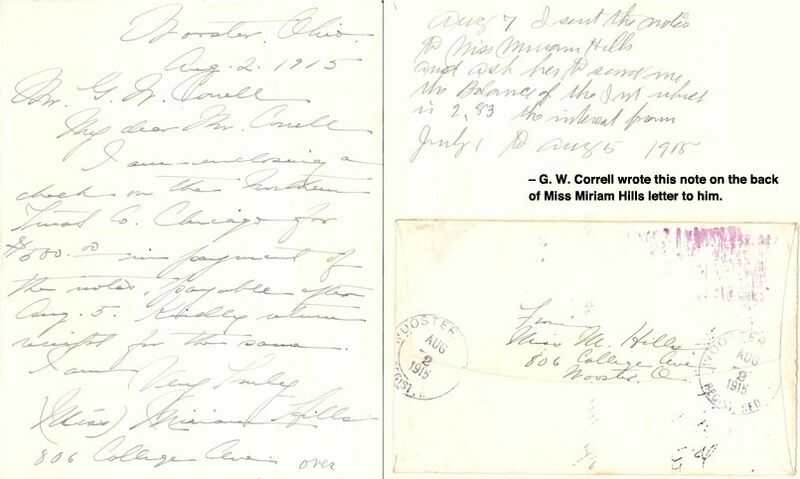 Wooster, Ohio.
Aug. 2. 1915
Mr. G. W. Correll
My dear Mr. Correll
I am enclosing a
check on the Northern
Trust Co. Chicago for
$500.00 in payment of
the notes, payable after
Aug. 5. Kindly return
receipt for the same.
I am
Very Truly
(Miss) Miriam Hills
806 College Ave.
over
Aug 7 I sent the notes
to Miss Miriam Hills
and ask her to send me
the Balance of the Int which
is 2,83 the interest from
July 1 to Aug 5 1915
– G. W. Correll wrote this note on the back
of Miss Miriam Hills letter to him.
From
Miss M. Hills
806 College Ave
Wooster. O.
WOOSTER
AUG
2
1915
REGIST
WOOSTER
AUG
2
1915
REGISTERED